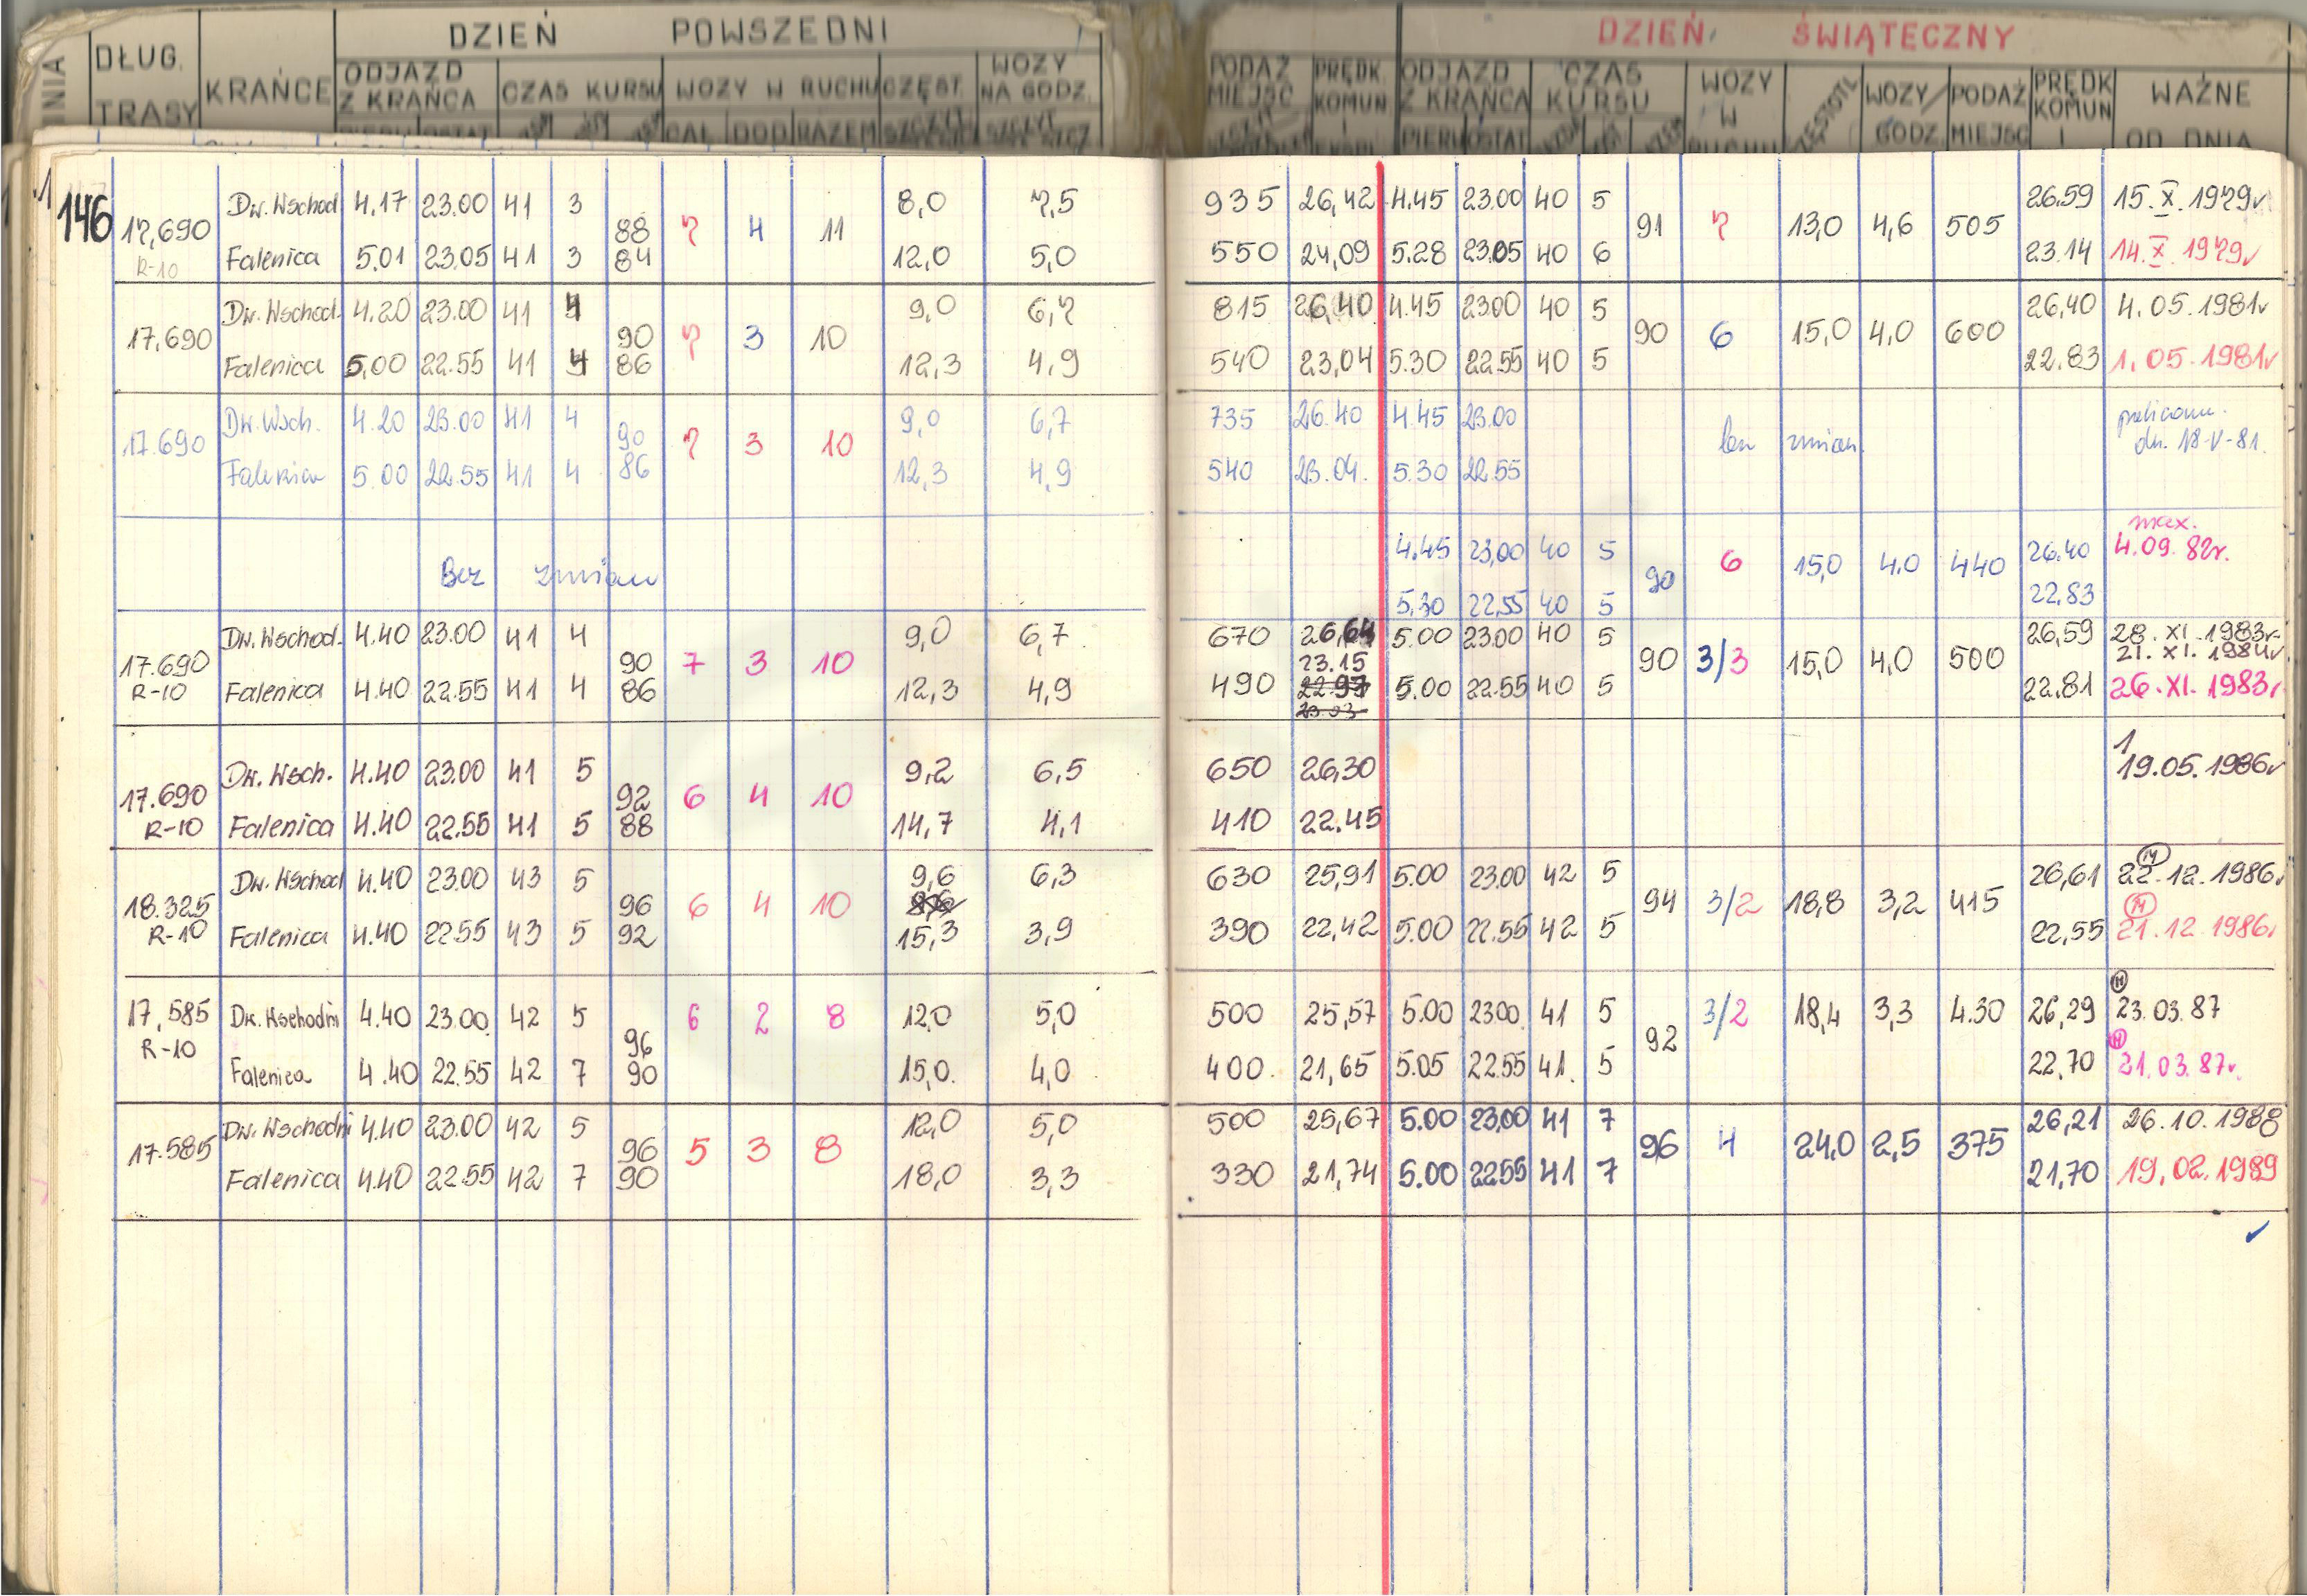 DZIEŃ POWSZEDNI DZIEŃ ŚWIĄTECZNY
DŁUG. TRASY KRAŃCE ODJAZD Z KRAŃCA CZAS KURSU WOZY W RUCHU CZĘST. WOZY NA GODZ. PODAŻ MIEJSC PRĘDK. KOMUN ODJAZD Z KRAŃCA CZAS KURSU WOZY W WOZY/GODZ. PODAŻ MIEJSC PRĘDK KOMUN WAŻNE OD DNIA
CAŁ DOD RAZEM
146
Dw. Wschod 4.17 23.00 41 3 8,0 7,5 935 26,42 4.45 23.00 40 5 26.59 15.X.1979r
17,690 88 7 4 11 91 7 13,0 4,6 505
R-10 Falenica 5.01 23.05 41 3 84 12,0 5,0 550 24,09 5.28 23.05 40 6 23.14 14.X.1979r
Dw. Wschod. 4.20 23.00 41 4 9,0 6,7 815 26,40 4.45 23.00 40 5 26,40 4.05.1981r
17,690 90 7 3 10 90 6 15,0 4,0 600
Falenica 5.00 22.55 41 4 86 12,3 4,9 540 23,04 5.30 22.55 40 5 22.83 1.05.1981r
Dw. Wsch. 4.20 23.00 41 4 9,0 6,7 735 26.40 4.45 23.00
17.690 90 7 3 10 zmian dn. 18-V-81.
Falenica 5.00 22.55 41 4 86 12,3 4,9 540 23.04. 5.30 22.55
max.
4.45 23,00 40 5 26.40 4.09.82r.
Bez zmian 90 6 15,0 4.0 440
5.30 22,55 40 5 22.83
Dw. Wschod. 4.40 23.00 41 4 9,0 6,7 670 26,64 5.00 23.00 40 5 26,59 28.XI.1983r
17.690 90 7 3 10 23.15 90 3/3 15,0 4,0 500 21.XI.1984r
R-10 Falenica 4.40 22.55 41 4 86 12,3 4,9 490 22.97 5.00 22.55 40 5 22,81 26.XI.1983r
23.03
1
Dw. Wsch. 4.40 23.00 41 5 9,2 6,5 650 26,30 19.05.1986r
17.690 92 6 4 10
R-10 Falenica 4.40 22.55 41 5 88 14,7 4,1 410 22.45
Dw. Wschod 4.40 23.00 43 5 9,6 6,3 630 25,91 5.00 23.00 42 5 26,61 22.12.1986r
18.325 96 6 4 10 94 3/2 18,8 3,2 415
R-10 Falenica 4.40 22.55 43 5 92 15,3 3,9 390 22,42 5.00 22.55 42 5 22,55 21.12.1986r
17,585 Dw. Wschodni 4.40 23.00 42 5 6 2 8 12,0 5,0 500 25,57 5.00 23.00 41 5 3/2 18,4 3,3 4.30 26,29 23.03.87
R-10 96 92
Falenica 4.40 22.55 42 7 90 15,0. 4,0 400. 21,65 5.05 22.55 41. 5 22,70 21.03.87r.
Dw. Wschodni 4.40 23.00 42 5 12,0 5,0 500 25,67 5.00 23,00 41 7 26,21 26.10.1988
17.585 96 5 3 8 96 4 24,0 2,5 375
Falenica 4.40 22.55 42 7 90 18,0 3,3 330 21,74 5.00 22.55 41 7 21,70 19.02.1989